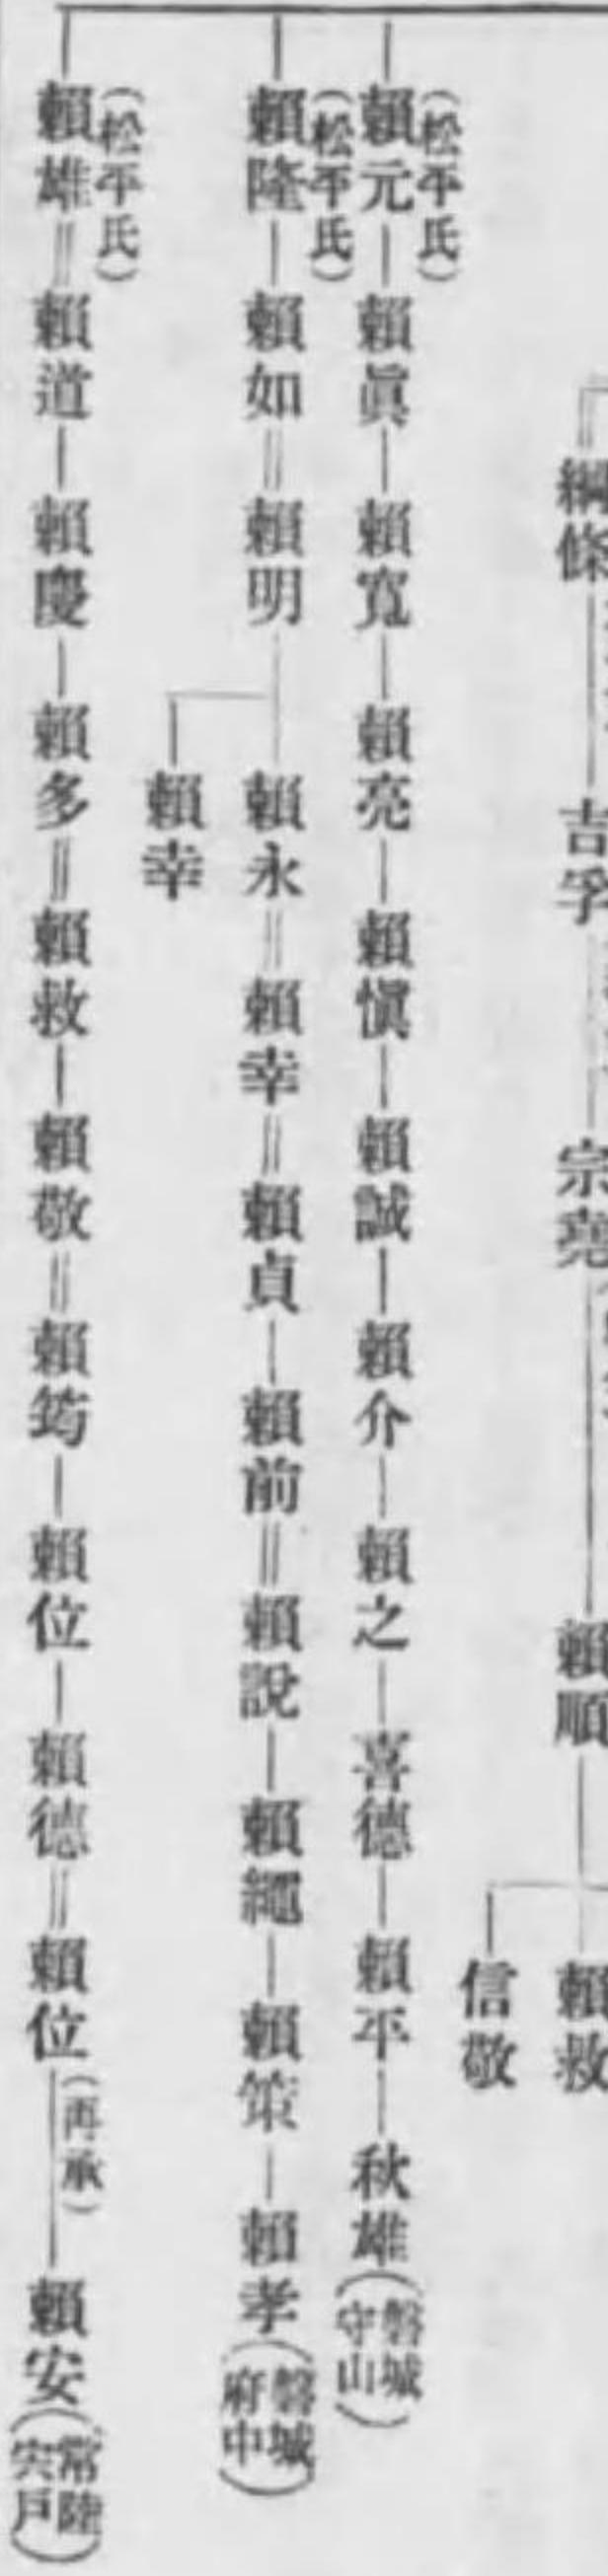 綱條―吉孚―宗堯―賴順―賴救
信敬
(松平氏)
賴元―賴眞―賴寬―賴亮―賴愼―賴誠―賴介―賴之―喜德―賴平―秋雄(磐城守山)
(松平氏)
賴隆―賴如=賴明―賴永=賴幸=賴貞―賴前=賴說―賴繩―賴策―賴孝(磐城府中)
賴幸
(松平氏)
賴雄=賴道―賴慶―賴多=賴救―賴敬=賴筠―賴位―賴德=賴位(再承)―賴安(常陸宍戶)